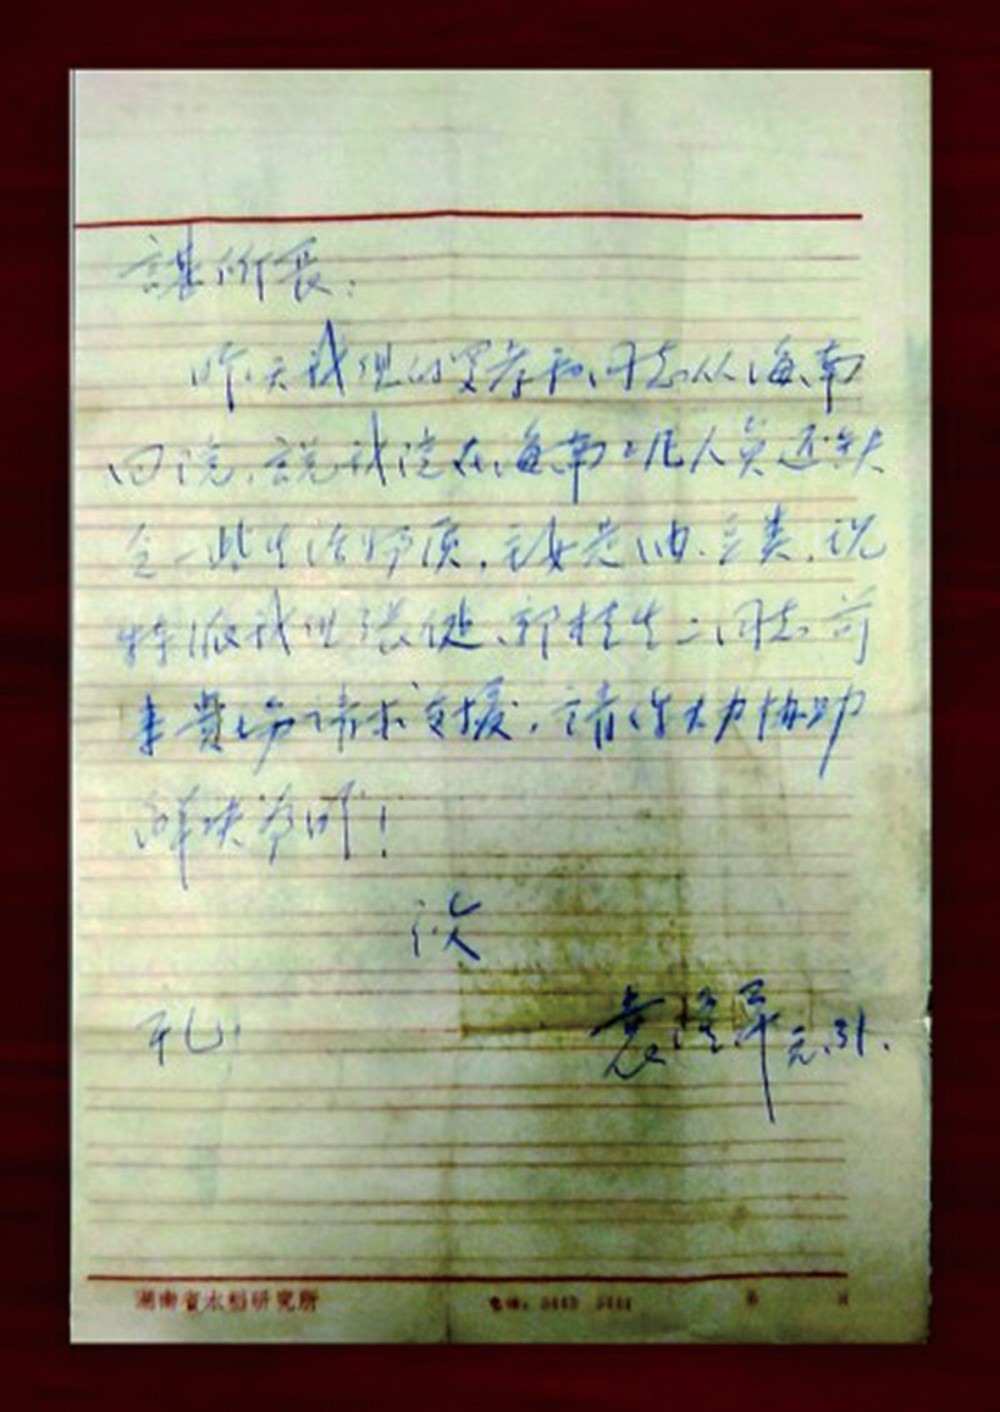 谌所长：
昨天我组的罗孝和同志从海南
回院，说我院在海南工作人员还缺
乏一些生活物质，主要是油、豆类，现
特派我组张健、郭桂生二同志前
来贵场请求支援，请您大力协助
解决为盼！
致
礼！
袁隆平 元.31.
湖南省水稻研究所 电话：